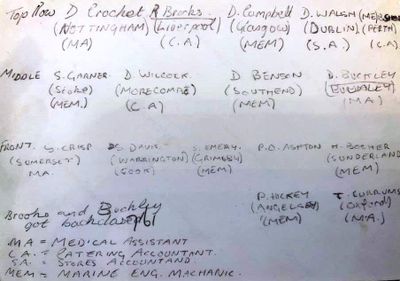 Top Row D Crochet R Brooks D. Campbell D. WALSH (ME)
(NOTTINGHAM) (Liverpool) (Glasgow) (DUBLIN) (PERTH)
(MA) (C.A.) (MEM) (S.A.) (C.A)
MIDDLE S. GARNER D. WILCOCK. D BENSON D. BUCKLEY
(Stoke) (MORECOMBE) (SOUTHEND)
(MEM.) (C.A) (MEM) (M.A.)
FRONT. CRISP DAVIS. S. EMERY. P.O. ASHTON H. BOCHER
(SOMERSET) (WARRINGTON) (GRIMSBY) (SUNDERLAND)
MA. (MEM) (MEM)
P. HOCKEY T. CURRUMS
(ANGELSEY) (Oxford)
(MEM) (M.A.)
Brooks and Buckley
got
MA = MEDICAL ASSISTANT
C.A. = CATERING ACCOUNTANT.
S.A. = STORES ACCOUNTAND.
MEM = MARINE ENG. MACHANIC.